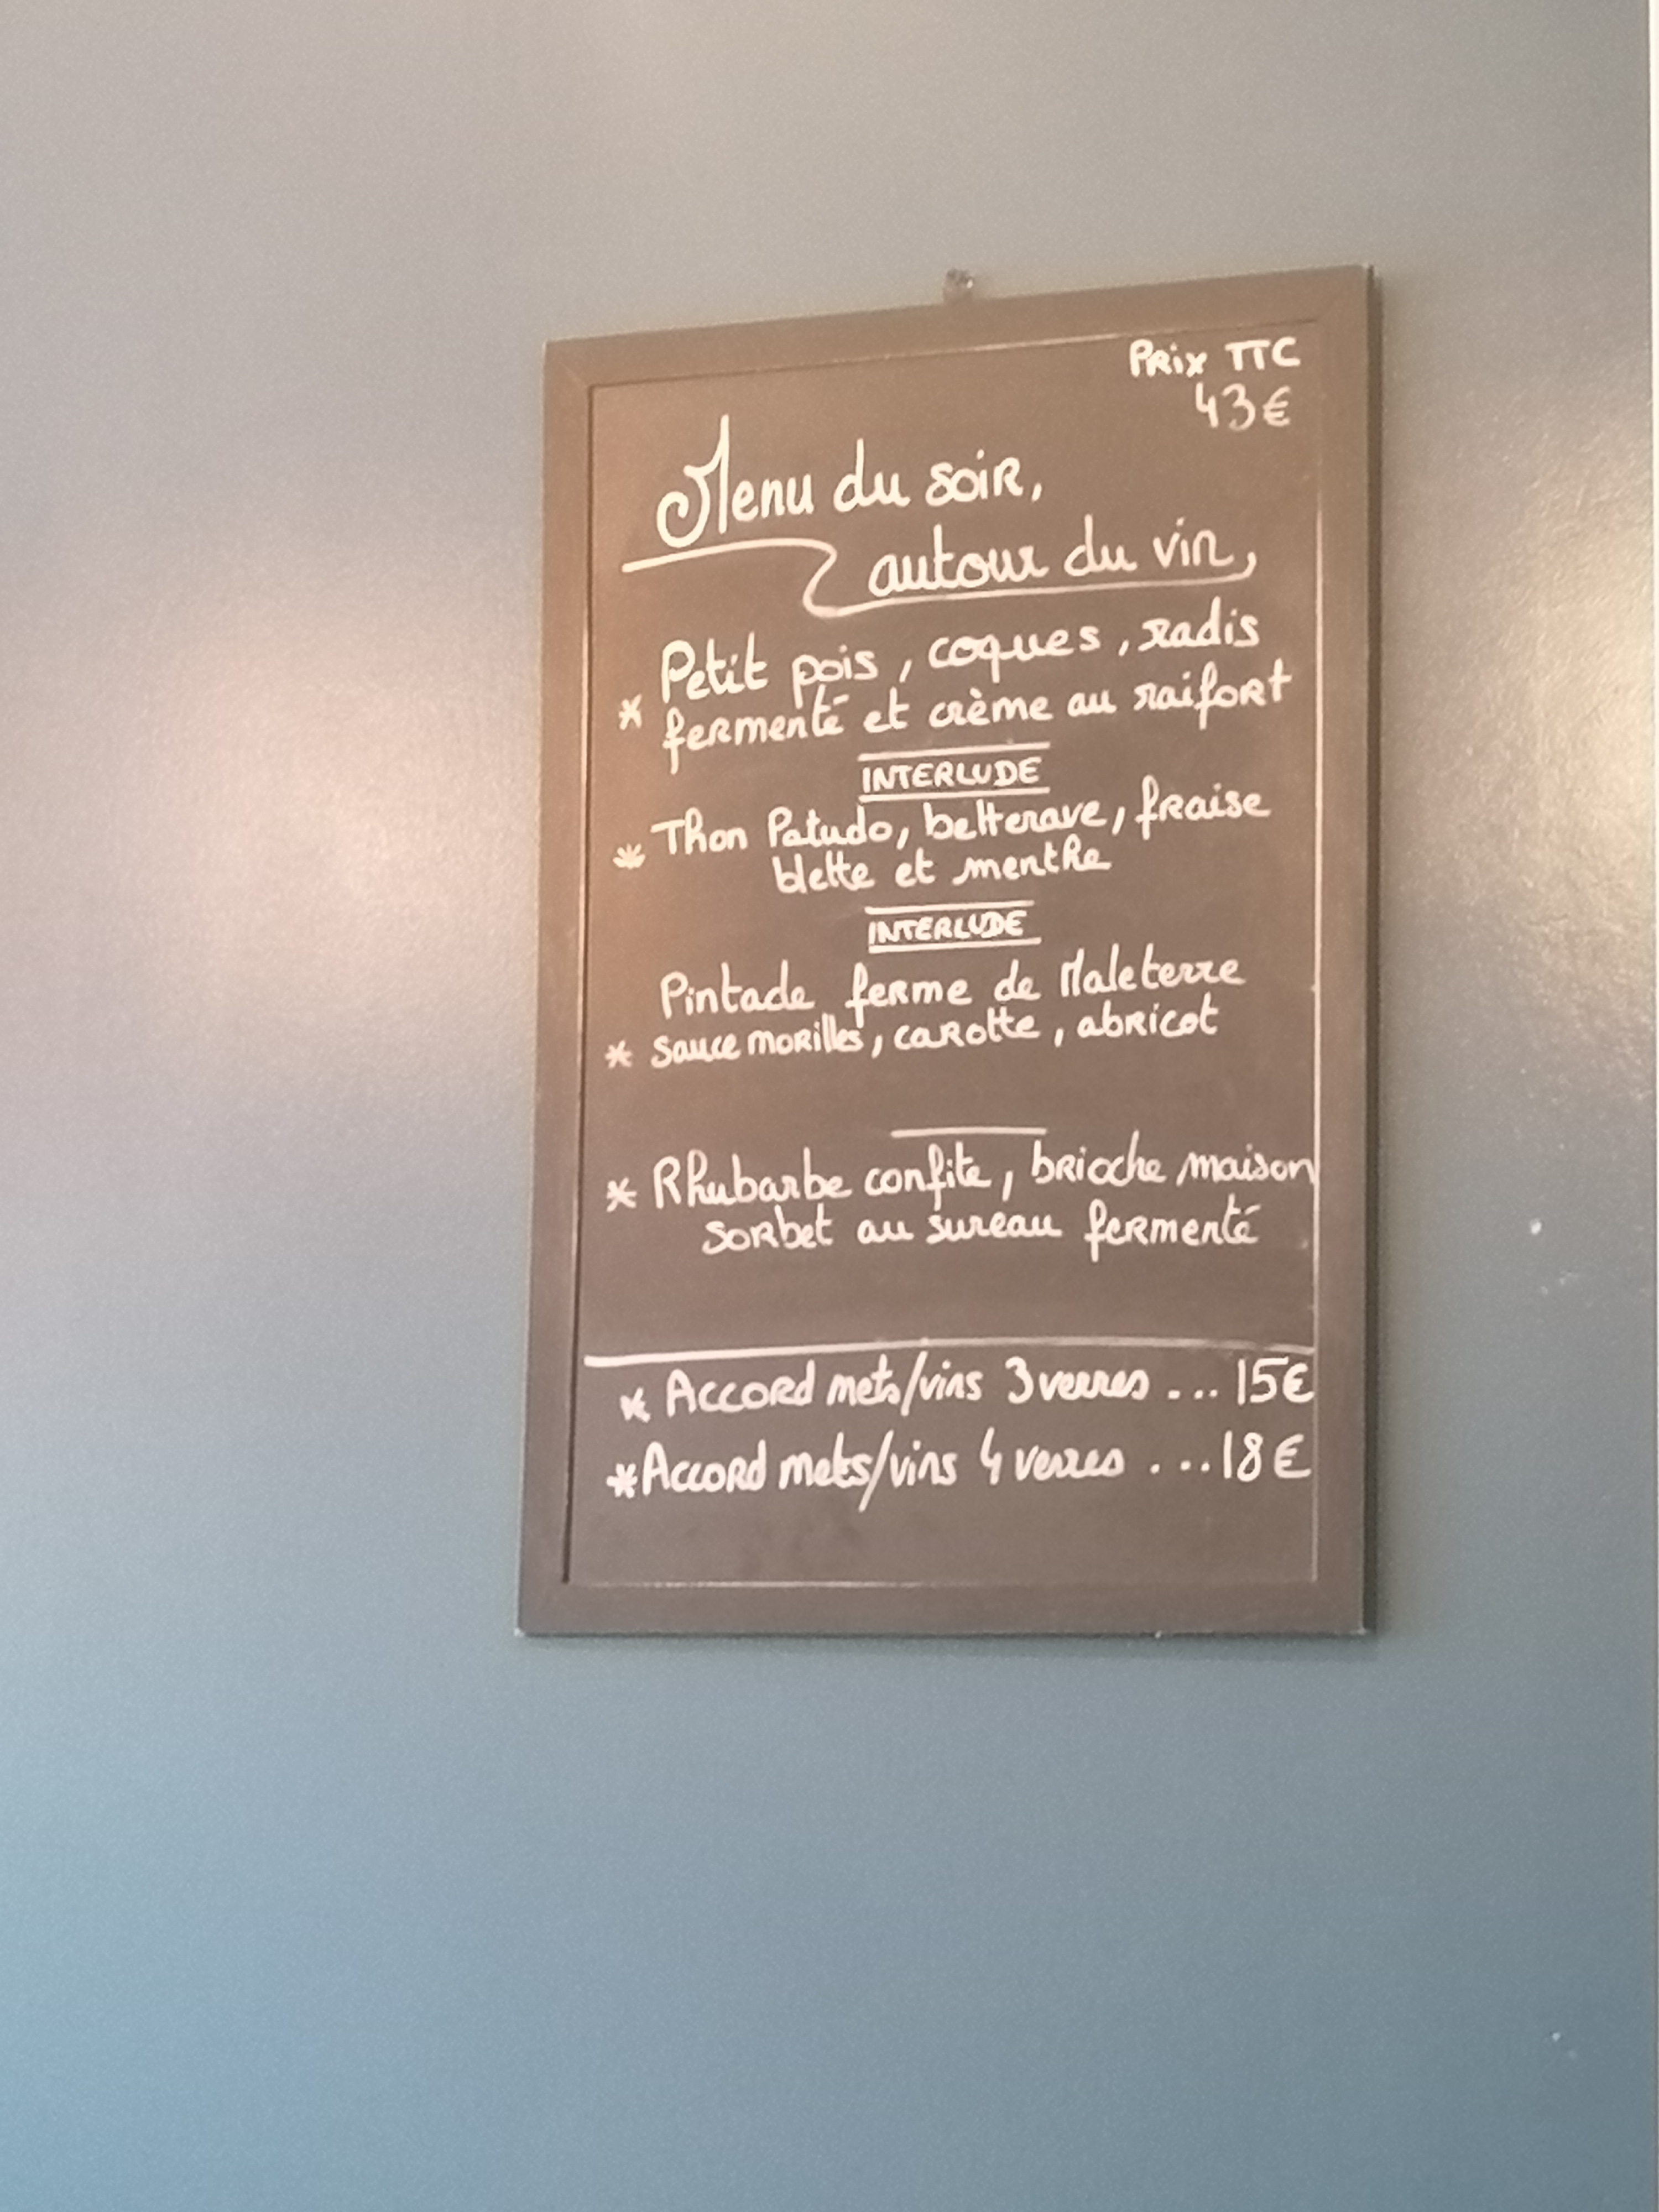 Prix TTC
43€
Menu du soir,
autour du vin,
Petit pois, coques, radis
* fermenté et crème au raifort
INTERLUDE
* Thon Patudo, betterave, fraise
blette et menthe
INTERLUDE
Pintade ferme de Maleterre
* sauce morilles, carotte, abricot
* Rhubarbe confite, brioche maison
sorbet au sureau fermenté
* Accord mets/vins 3 verres ... 15€
* Accord mets/vins 4 verres ... 18€